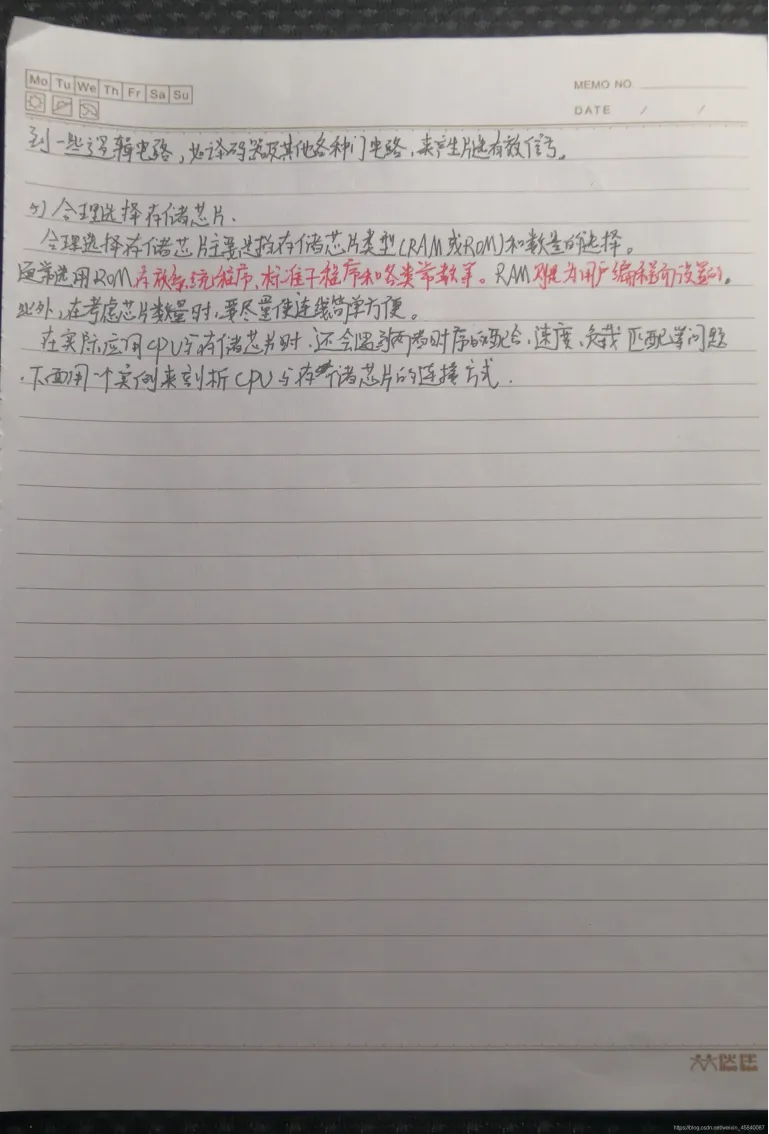 Mo Tu We Th Fr Sa Su
MEMO NO.
DATE / /
到一些逻辑电路,如译码器及其他各种门电路,来产生片选有效信号。
5) 合理选择存储芯片.
合理选择存储芯片主要是指存储芯片类型(RAM或ROM)和数量的选择。
通常选用ROM存放系统程序,标准子程序和各类常数等。RAM则是为用户编程而设置的。
此外,在考虑芯片数量时,要尽量使连线简单方便。
在实际应用CPU与存储芯片时,还会遇到两者时序的配合,速度、负载匹配等问题
下面用一个实例来剖析CPU与存储芯片的连接方式.
https://blog.csdn.net/weixin_45840087